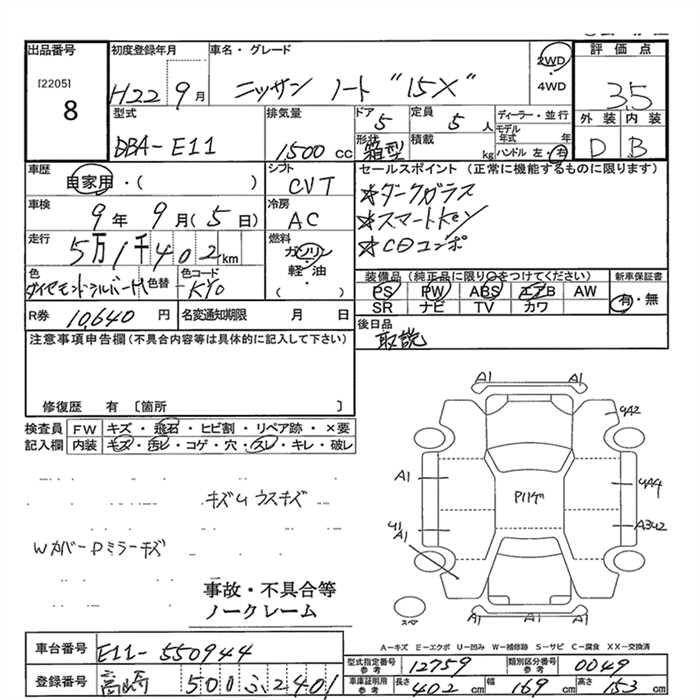 出品番号 初度登録年月 車名・グレード 2WD 4WD 評価点
[2205]
8
H22 9月 ニッサン ノート "15X" 3.5
型式 排気量 ドア 定員 ディーラー・並行 外装 内装
DBA-E11 1500cc 5 5人 モデル年式 年 D B
形状 箱型 積載 kg ハンドル 左・右
車歴 シフト セールスポイント (正常に機能するものに限ります)
自家用・( ) CVT ☆ダークガラス
車検 冷房 ☆スマートKey
9年 9月(5日) AC ☆CDコンポ
走行 燃料
5万1千402km ガソリン
軽・油
( )
色 色替 色コード 装備品(純正品に限り○をつけてください) 新車保証書
ダイヤモンドシルバーM KY0 PS PW ABS エアB AW 有・無
SR ナビ TV カワ
R券 10,640円 名変通知期限 月 日 後日品
取説
注意事項申告欄(不具合内容等は具体的に記入して下さい)
修復歴 有 〔箇所 〕
検査員 FW キズ・飛石・ヒビ割・リペア跡・×要
記入欄 内装 キズ・汚レ・コゲ・穴・スレ・キレ・破レ
A1 A1
A1
Wカバー Pミラーキズ
事故・不具合等
ノークレーム
スペア
A1 A1
A-キズ E-エクボ U-凹み W-補修跡 S-サビ C-腐食 XX-交換済
車台番号 E11-550944
型式指定番号 参考 12759 類別区分番号 参考 0049
登録番号 高崎 500 ふ 2401
車庫証明用 参考 長さ 402cm 幅 169cm 高さ 153cm